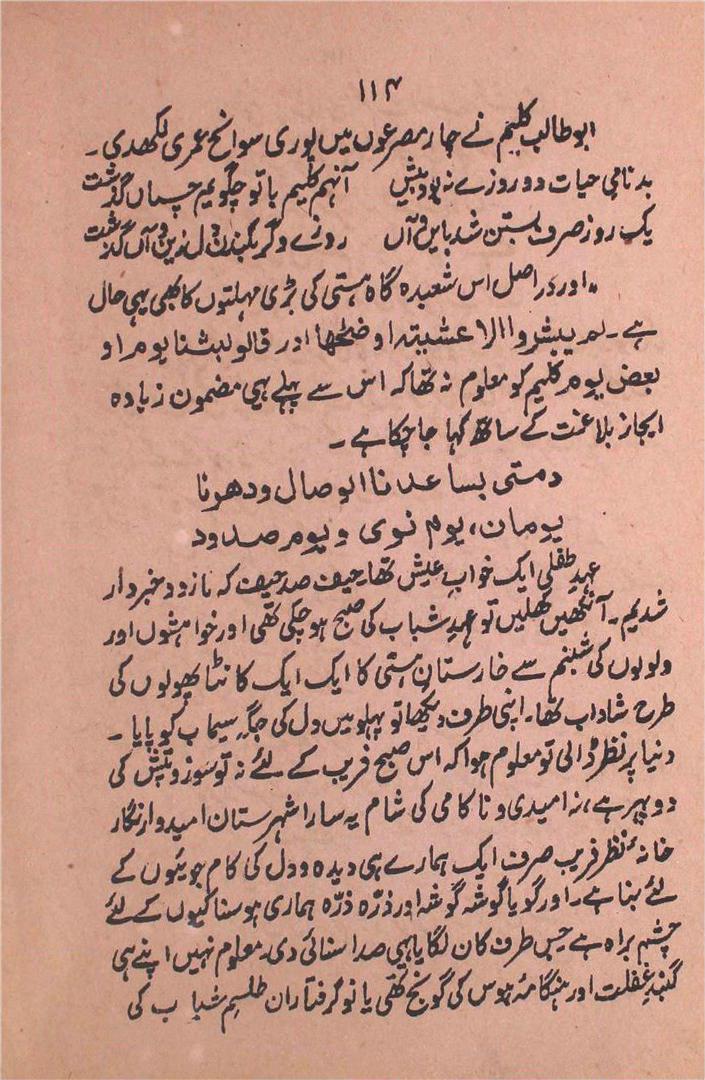 ۱۱۴
ابوطالب کلیم نے چار مصرعوں میں پوری سوانح عمری لکھدی۔
بدنامیِ حیات دو روزے نہ بود بیش    آنہم کلیم باتو چگویم چساں گذشت
یک روز صرف بستن شد باین و آں    روزے دگر بکندن دل زین و آں گذشت
اور دراصل اس شعبدہ گاہ ہستی کی بڑی مہلتوں کا بھی یہی حال
ہے۔ لم یبشروا الا عشیتہ او ضحٰھا اور قالو لبثنا یوم او
بعض یوم کلیم کو معلوم نہ تھا کہ اس سے پہلے یہی مضمون زیادہ
ایجاز بلاغت کے ساتھ کہا جا چکا ہے۔
ومتی یساعدنا الوصال ودھرنا
یومان، یوم نوی و یوم صدود
عہدِ طفلی ایک خوابِ عیش تھا، حیف صد حیف کہ مازود خبردار
شدیم۔ آنکھیں کھلیں تو عہدِ شباب کی صبح ہو چکی تھی اور خواہشوں اور
ولولوں کی شبنم سے خارستانِ ہستی کا ایک ایک کانٹا پھولوں کی
طرح شاداب تھا۔ اپنی طرف دیکھا تو پہلو میں دل کی جگہ سیماب کو پایا۔
دنیا پر نظر ڈالی تو معلوم ہوا کہ اس صبح فریب کے لئے نہ تو سوز و تپش کی
دوپہر ہے، نہ امیدی و ناکامی کی شام یہ سارا شہرستان امید و ارنگار
خانۂ نظر فریب صرف ایک ہمارے ہی دیدہ و دل کی کام جوئیوں کے
لئے بنا ہے۔ اور گویا گوشہ گوشہ اور ذرّہ ذرّہ ہماری ہوسناکیوں کے لئے
چشم براہ ہے جس طرف کان لگایا یہی صدا سنائی دی۔ معلوم نہیں اپنے ہی
گنبدِ غفلت اور ہنگامۂ ہوس کی گونج تھی یا نو گرفتاران طلسمِ شباب کی